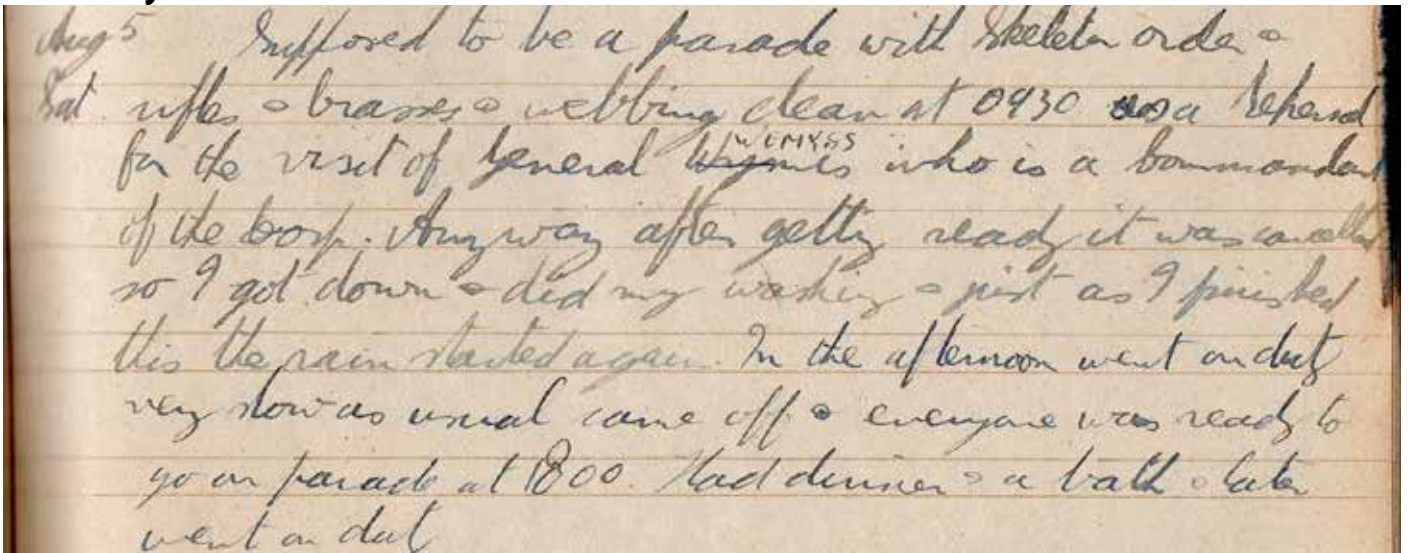 Aug 5 Supposed to be a parade with Skeleton order &
Sat. rifles & brasses & webbing clean at 0930 as a Rehersal
for the visit of General Wymes WEMYSS who is a Commandant
of the Corp. Anyway after getting ready it was cancelled
so I got down & did my washing & just as I finished
this the rain started again. In the afternoon went on duty
very slow as usual came off & everyone was ready to
go on parade at 1800. Had dinner & a bath & later
went on duty